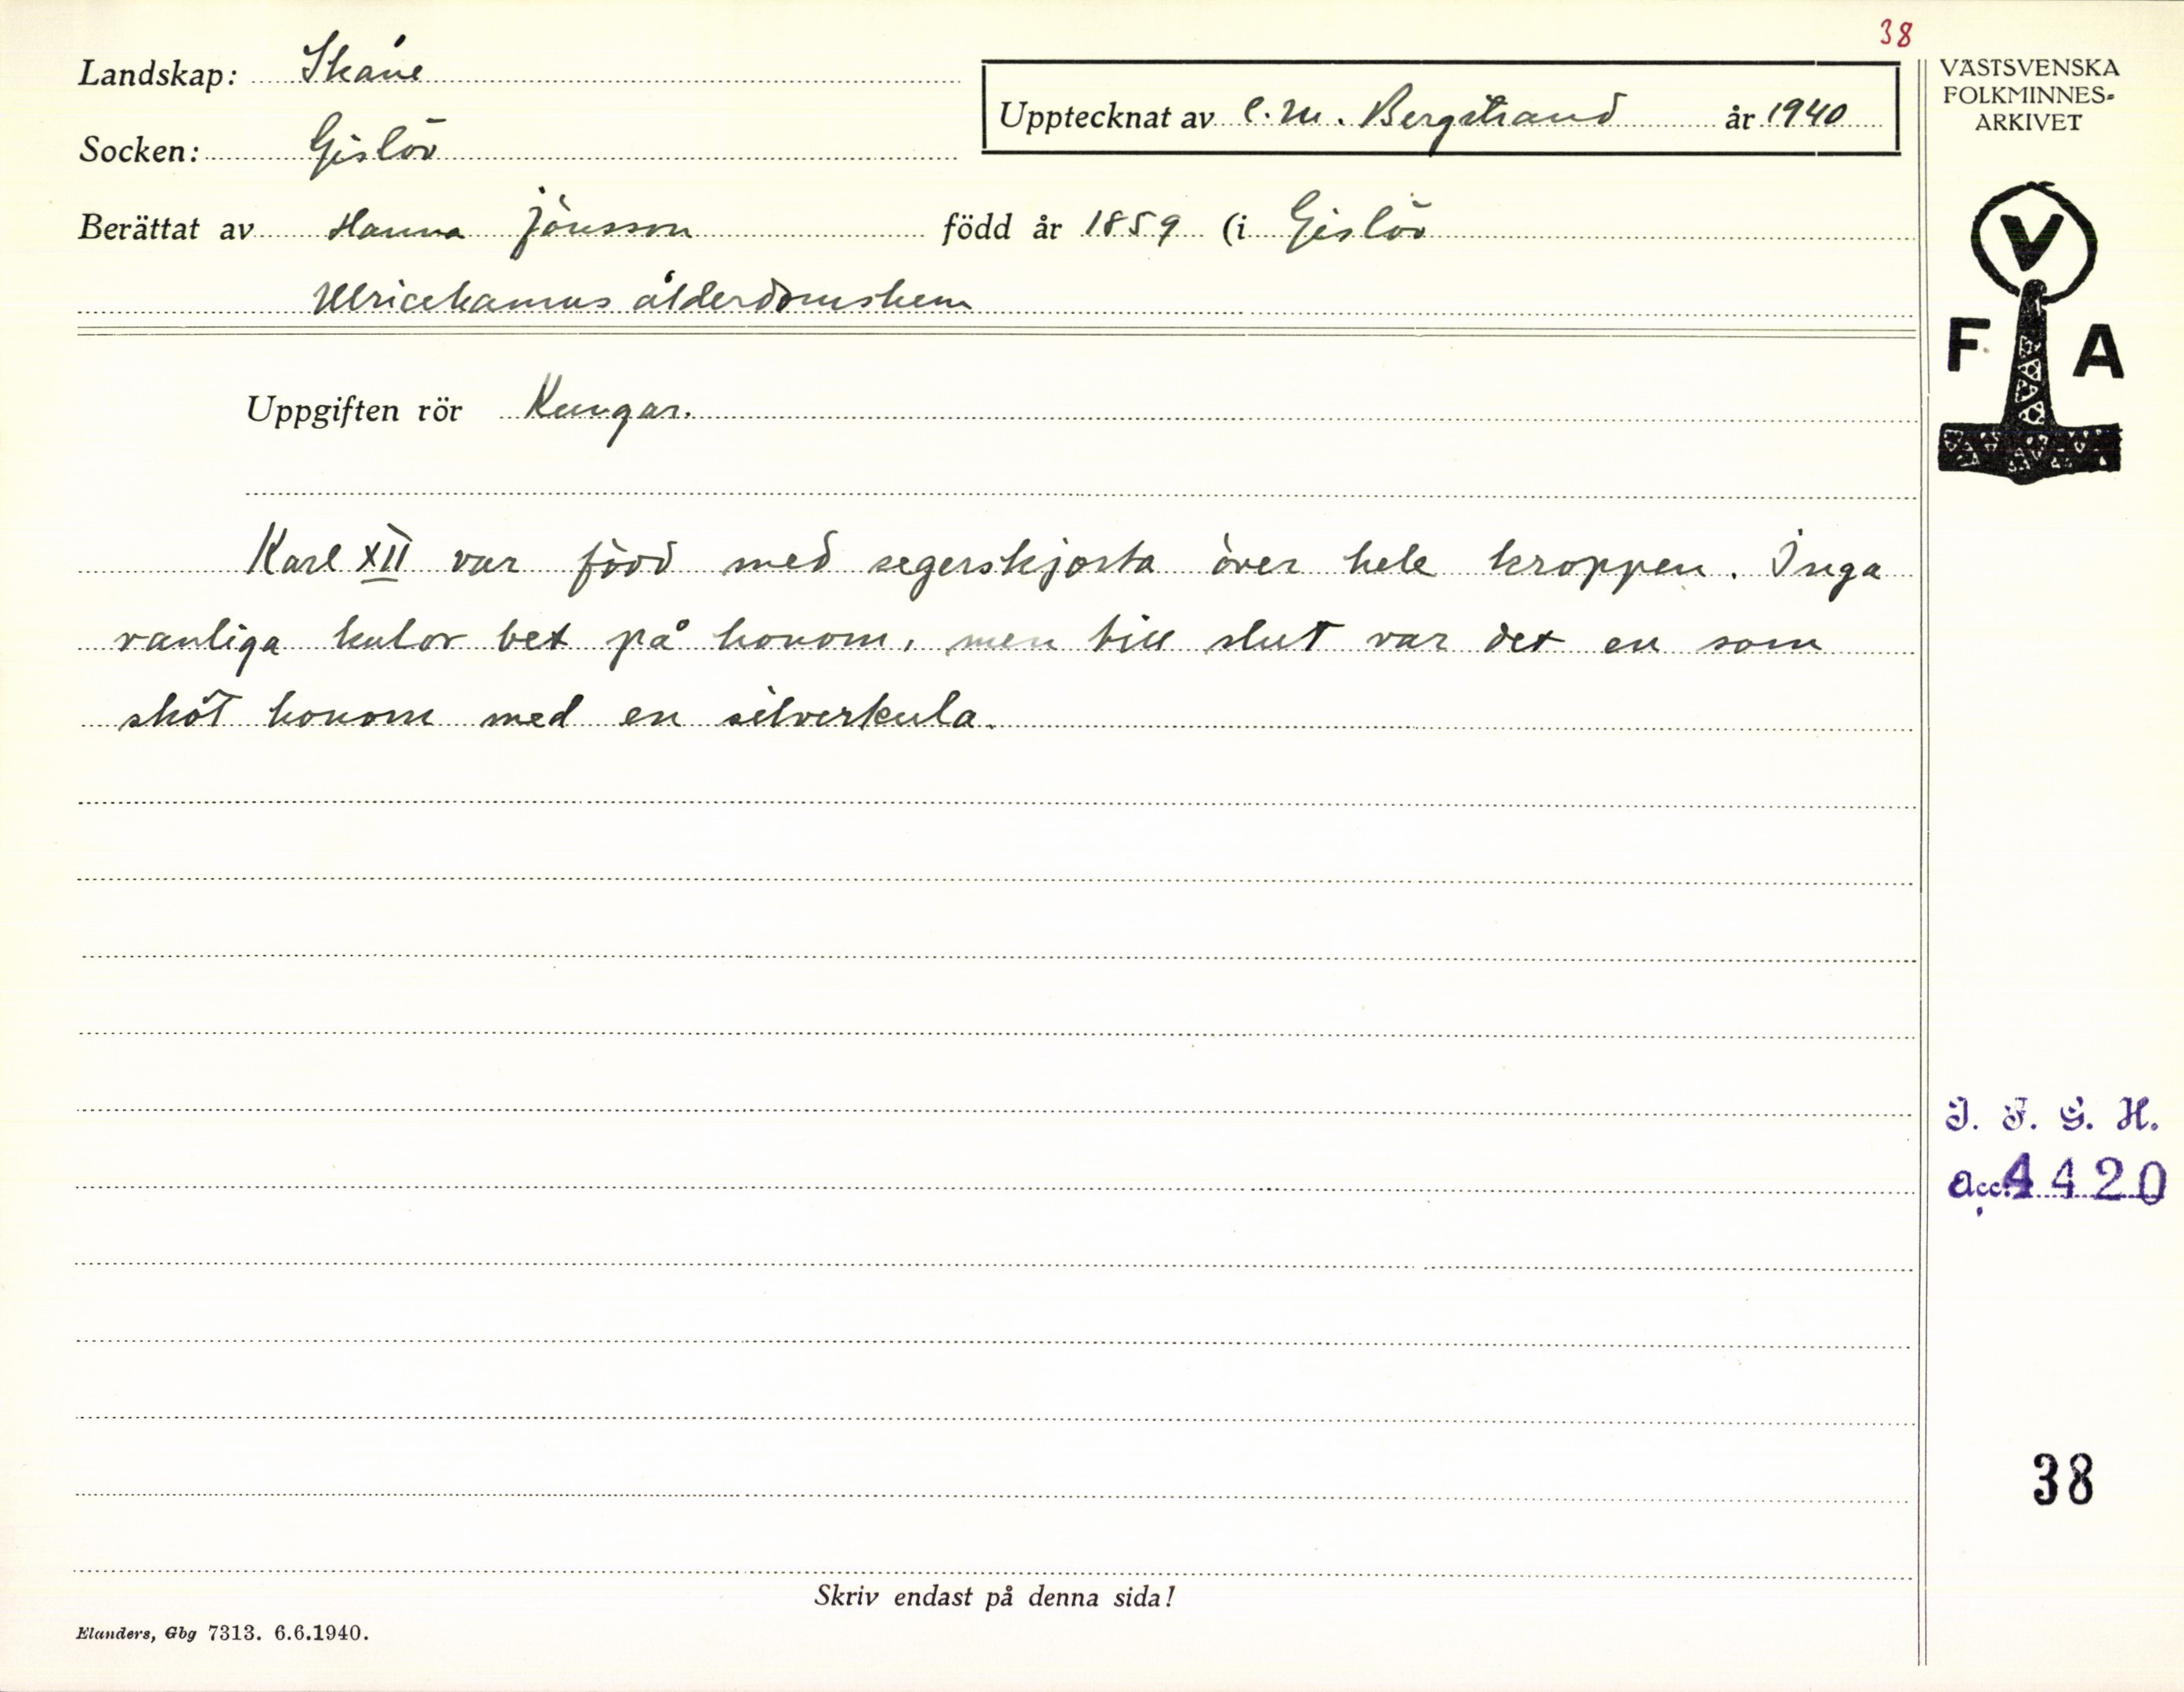 38
Landskap: Skåne
Socken: Gislöv
Upptecknat av C. M. Bergstrand år 1940
Berättat av Hanna Jönsson född år 1859 (i Gislöv
Ulricehamns ålderdomshem
Uppgiften rör Kungar.
Karl XII var född med segerskjorta över hele kroppen. Inga
vanliga kulor bet på honom, men till slut var det en som
sköt honom med en silverkula.
Skriv endast på denna sida!
Elanders, Gbg 7313. 6.6.1940.
VÄSTSVENSKA
FOLKMINNES-
ARKIVET
V
F A
I. F. G. H.
Acc. 4420
38